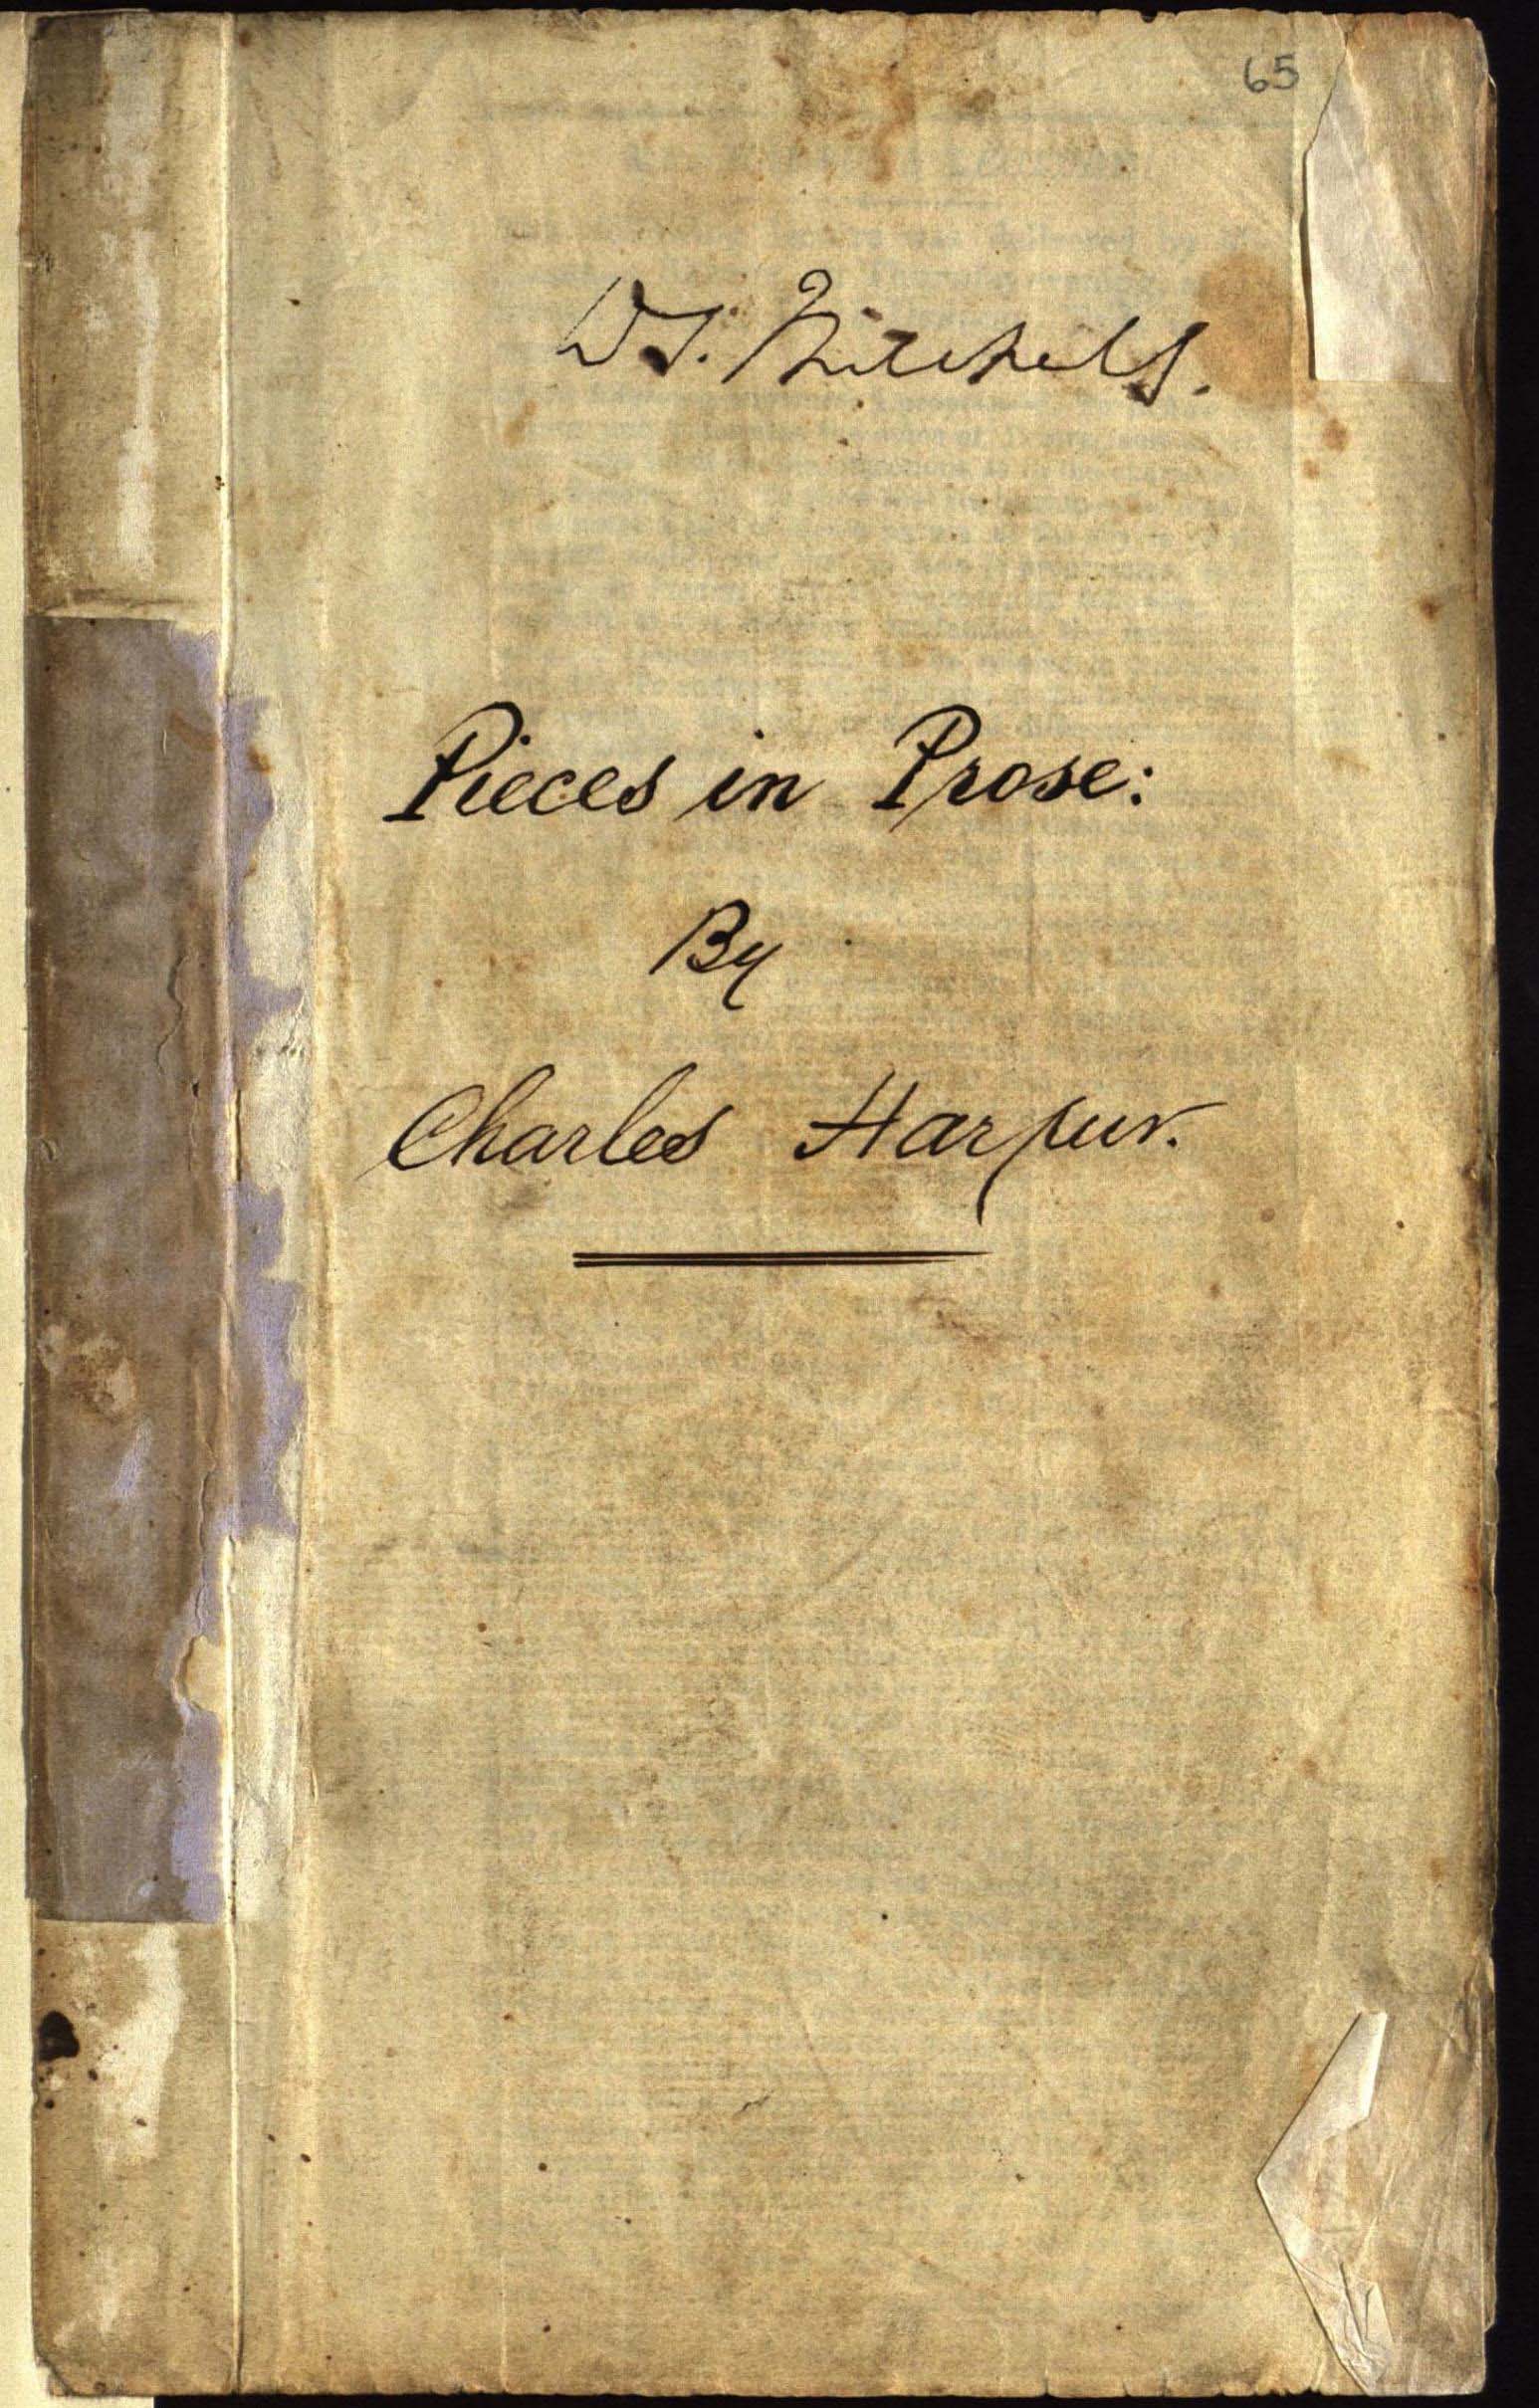 65
D S. Mitchell.
Pieces in Prose:
By
Charles Harpur.